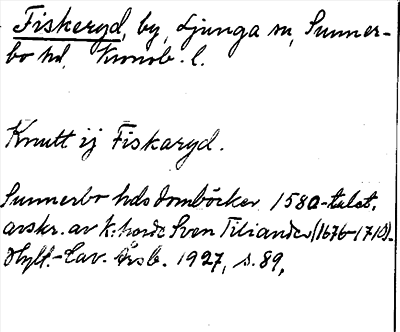 Fiskeryd, by, Ljunga sn, Sunner-
bo hd, Kronob. l.
Knutt ij Fiskaryd.
Sunnerbo hds domböcker 1580-talet,
avskr. av k:horde Sven Tiliander (1676-1710).
Hylt.-Cav. Årsb. 1927, s. 89,